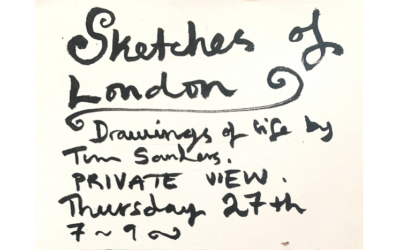 Sketches of
London
Drawings of life by
Tim Sanders.
PRIVATE VIEW.
Thursday 27th
7 ~ 9